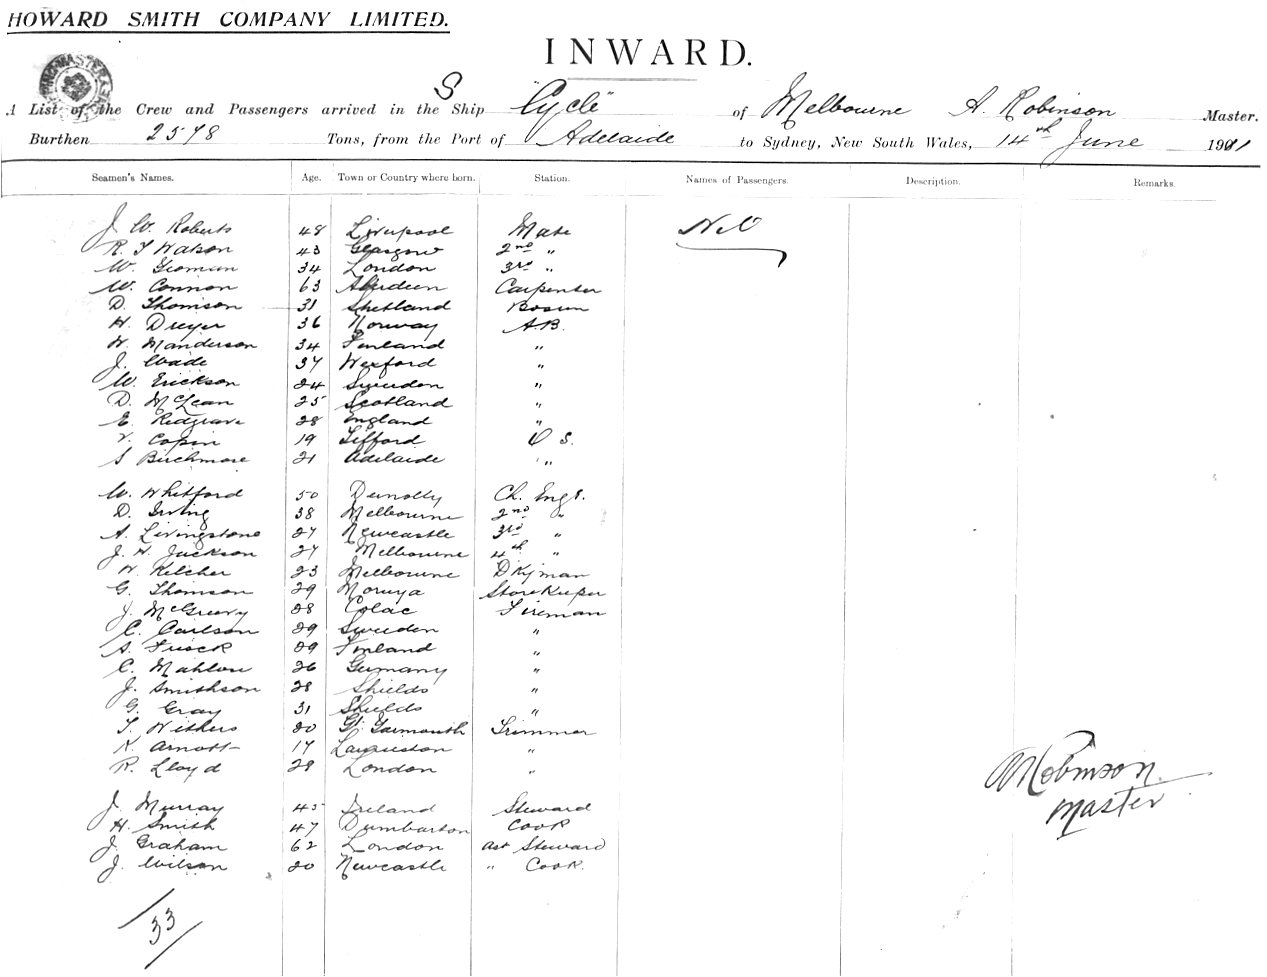 HOWARD SMITH COMPANY LIMITED.
INWARD.
A List of the Crew and Passengers arrived in the S Ship "Cycle" of Melbourne A. Robinson Master.
Burthen 2578 Tons, from the Port of Adelaide to Sydney, New South Wales, 14th June 1911
Seamen's Names. Age. Town or Country where born. Station. Names of Passengers. Description. Remarks.
J W. Roberts 48 Liverpool Mate Nil
R. J Watson 43 Glasgow 2nd "
W. Yeoman 34 London 3rd "
W. Connon 63 Aberdeen Carpenter
D. Thomson 31 Shetland Bosun
H. Dreyer 36 Norway A.B.
W. Manderson 34 Finland "
J. Wade 37 Wexford "
W. Erickson 24 Sweden "
D. McLean 25 Scotland "
E. Redgrave 28 England "
V. Copin 19 O S.
S Birchmore 21 Adelaide "
W. Whitford 50 Dunolly Ch. Engr.
D. Irving 38 Melbourne 2nd "
A. Livingstone 27 Newcastle 3rd "
J. H. Jackson 27 Melbourne 4th "
W. Kelcher 23 Melbourne Dkyman
G. Thomson 29 Moruya Storekeeper
J. McGreevy 28 Colac Fireman
C. Carlson 29 Sweden "
A. 29 Finland "
C. Mahlow 26 Germany "
J. Smithson 28 Shields "
G. Gray 31 Shields "
T. Withers 20 Gt. Yarmouth Trimmer
K. Arnott 17 Launceston "
R. Lloyd 28 London "
J. Murray 45 Ireland Steward
H. Smith 47 Dumbarton Cook
J. Graham 62 London Ast Steward
J. Wilson 20 Newcastle " Cook.
A Robinson
Master
33